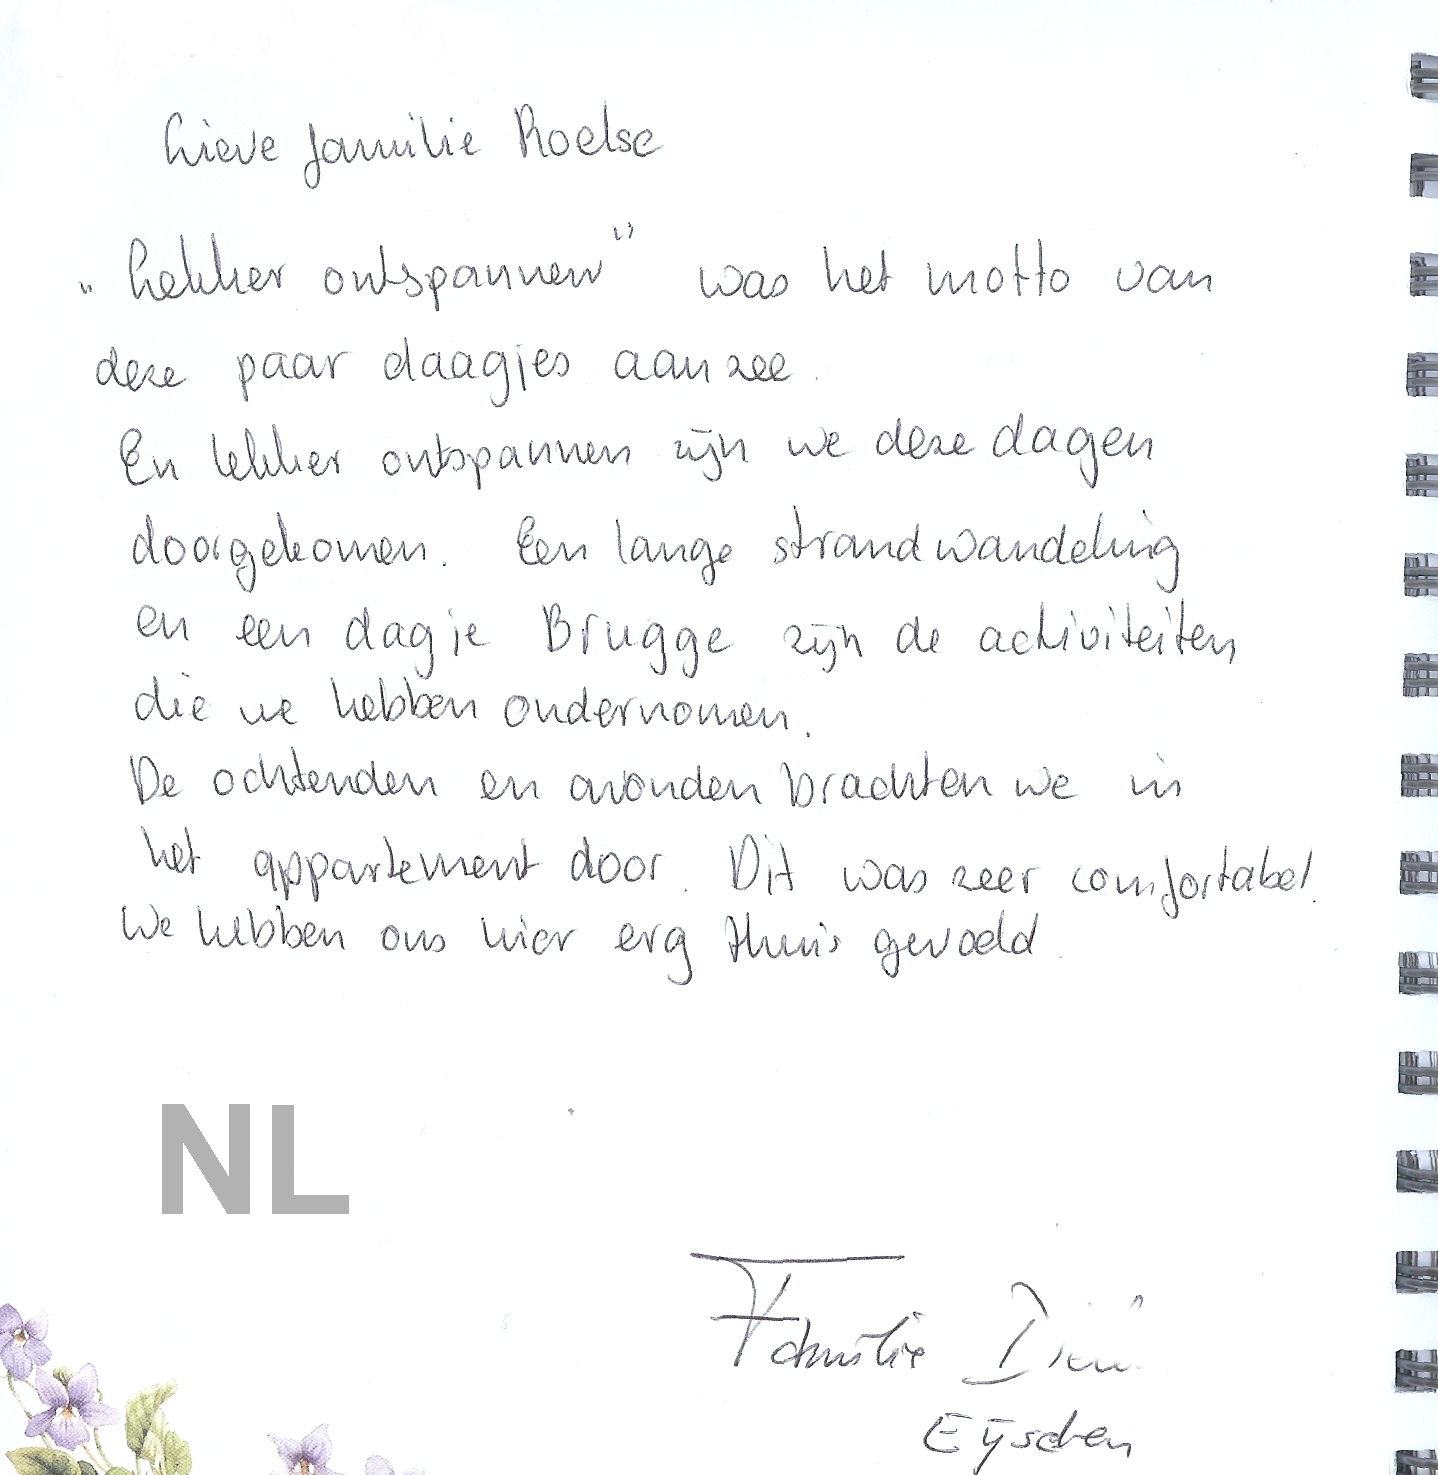 Lieve familie Roelse
"Lekker ontspannen" was het motto van
deze paar daagjes aan zee.
En lekker ontspannen zijn we deze dagen
doorgekomen. Een lange strandwandeling
en een dagje Brugge zijn de activiteiten
die we hebben ondernomen.
De ochtenden en avonden brachten we in
het appartement door. Dit was zeer comfortabel.
We hebben ons hier erg thuis gevoeld.
NL
Familie
Eijsden